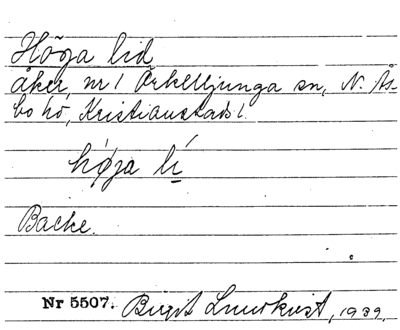 Höga lid
åker, nr 1 Örkelljunga sn, N. Ås-
bo hd, Kristianstads l.
hǿga lí
Backe.
Nr 5507. Birgit Lundkvist, 1939.